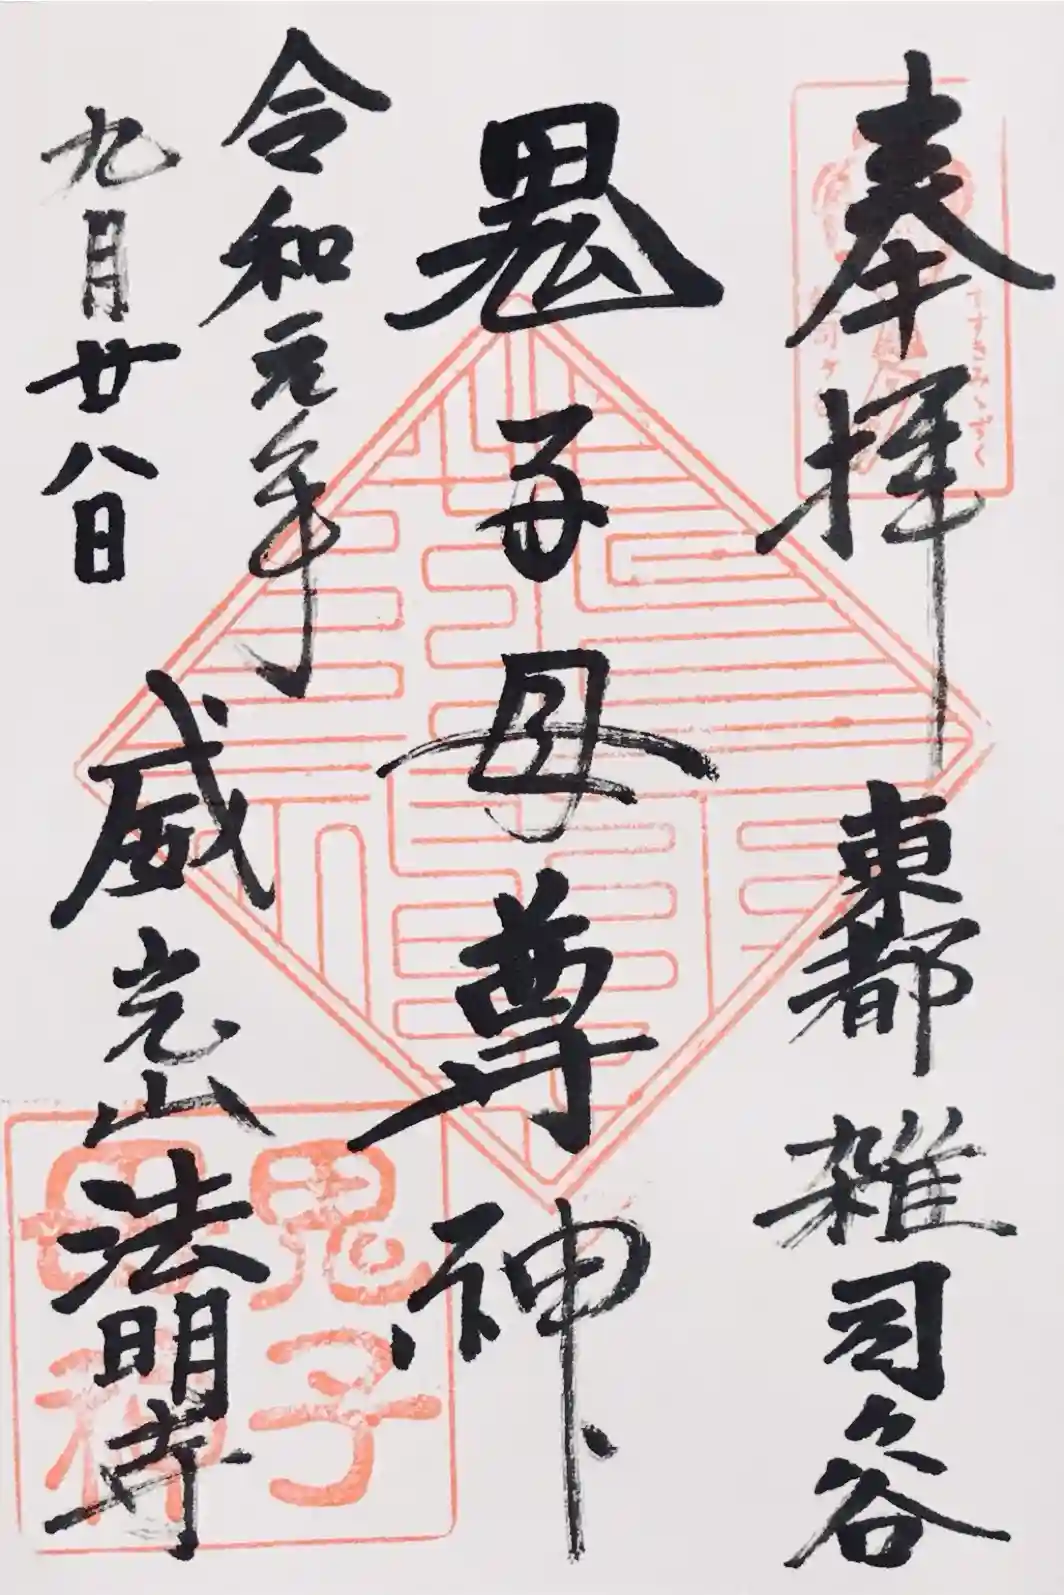 奉拝
東都 雑司ヶ谷
鬼子母尊神
令和元年
九月廿八日
威光山法明寺
すすきみゝずく
鬼子
母神